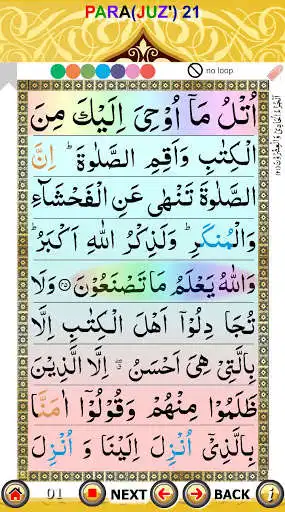 PARA(JUZ') 21
no loop
اُتْلُ مَاۤ اُوْحِیَ اِلَیْكَ مِنَ
الْكِتٰبِ وَاَقِمِ الصَّلٰوةَ ؕ اِنَّ
الصَّلٰوةَ تَنْهٰی عَنِ الْفَحْشَآءِ
وَالْمُنْكَرِ ؕ وَلَذِكْرُ اللّٰهِ اَكْبَرُ ؕ
وَاللّٰهُ یَعْلَمُ مَا تَصْنَعُوْنَ ﴿۴۵﴾ وَلَا
تُجَادِلُوْۤا اَهْلَ الْكِتٰبِ اِلَّا
بِالَّتِیْ هِیَ اَحْسَنُ ۖ اِلَّا الَّذِیْنَ
ظَلَمُوْا مِنْهُمْ وَقُوْلُوْۤا اٰمَنَّا
بِالَّذِیْۤ اُنْزِلَ اِلَیْنَا وَ اُنْزِلَ
01 NEXT BACK